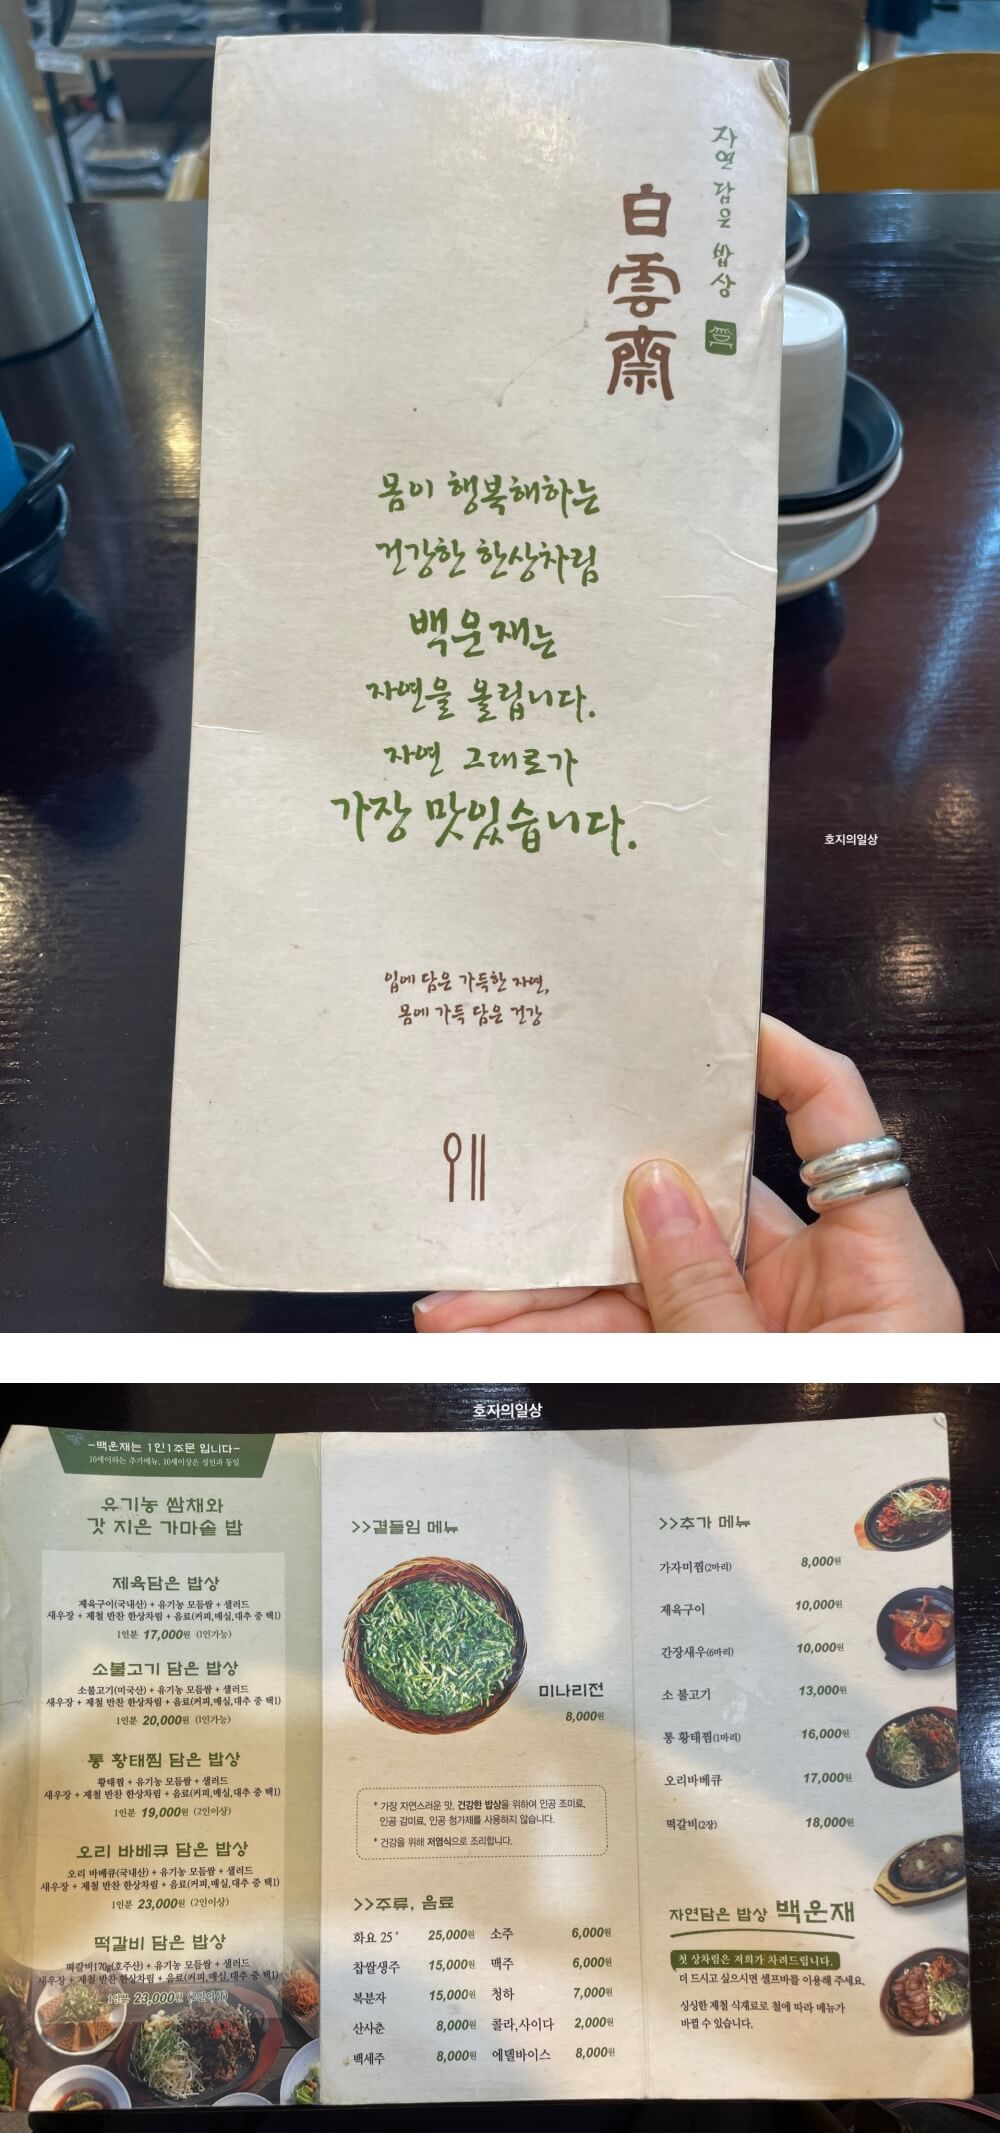 자연 담은 밥상
白雲齋
몸이 행복해하는
건강한 한상차림
백운재는
자연을 올립니다.
자연 그대로가
가장 맛있습니다.
호지의일상
입에 담은 가득한 자연,
몸에 가득 담은 건강
호지의일상
-백운재는 1인1주문 입니다-
10세이하는 추가메뉴, 10세이상은 성인과 동일
유기농 쌈채와
갓 지은 가마솥 밥
제육담은 밥상
제육구이(국내산) + 유기농 모듬쌈 + 샐러드
새우장 + 제철 반찬 한상차림 + 음료(커피,매실,대추 중 택1)
1인분 17,000원 (1인가능)
소불고기 담은 밥상
소불고기(미국산) + 유기농 모듬쌈 + 샐러드
새우장 + 제철 반찬 한상차림 + 음료(커피,매실,대추 중 택1)
1인분 20,000원 (1인가능)
통 황태찜 담은 밥상
황태찜 + 유기농 모듬쌈 + 샐러드
새우장 + 제철 반찬 한상차림 + 음료(커피,매실,대추 중 택1)
1인분 19,000원 (2인이상)
오리 바베큐 담은 밥상
오리 바베큐(국내산) + 유기농 모듬쌈 + 샐러드
새우장 + 제철 반찬 한상차림 + 음료(커피,매실,대추 중 택1)
1인분 23,000원 (2인이상)
떡갈비 담은 밥상
떡갈비170g(호주산) + 유기농 모듬쌈 + 샐러드
새우장 + 제철 반찬 한상차림 + 음료(커피,매실,대추 중 택1)
1인분 23,000원 (2인이상)
>>곁들임 메뉴
미나리전
8,000원
* 가장 자연스러운 맛, 건강한 밥상을 위하여 인공 조미료,
인공 감미료, 인공 첨가제를 사용하지 않습니다.
* 건강을 위해 저염식으로 조리합니다.
>>주류, 음료
화요 25° 25,000원 소주 6,000원
찹쌀생주 15,000원 맥주 6,000원
복분자 15,000원 청하 7,000원
산사춘 8,000원 콜라,사이다 2,000원
백세주 8,000원 에델바이스 8,000원
>>추가 메뉴
가자미찜(2마리) 8,000원
제육구이 10,000원
간장새우(6마리) 10,000원
소 불고기 13,000원
통 황태찜(1마리) 16,000원
오리바베큐 17,000원
떡갈비(2장) 18,000원
자연담은 밥상 백운재
첫 상차림은 저희가 차려드립니다.
더 드시고 싶으시면 셀프바를 이용해 주세요.
싱싱한 제철 식재료로 철에 따라 메뉴가
바뀔 수 있습니다.